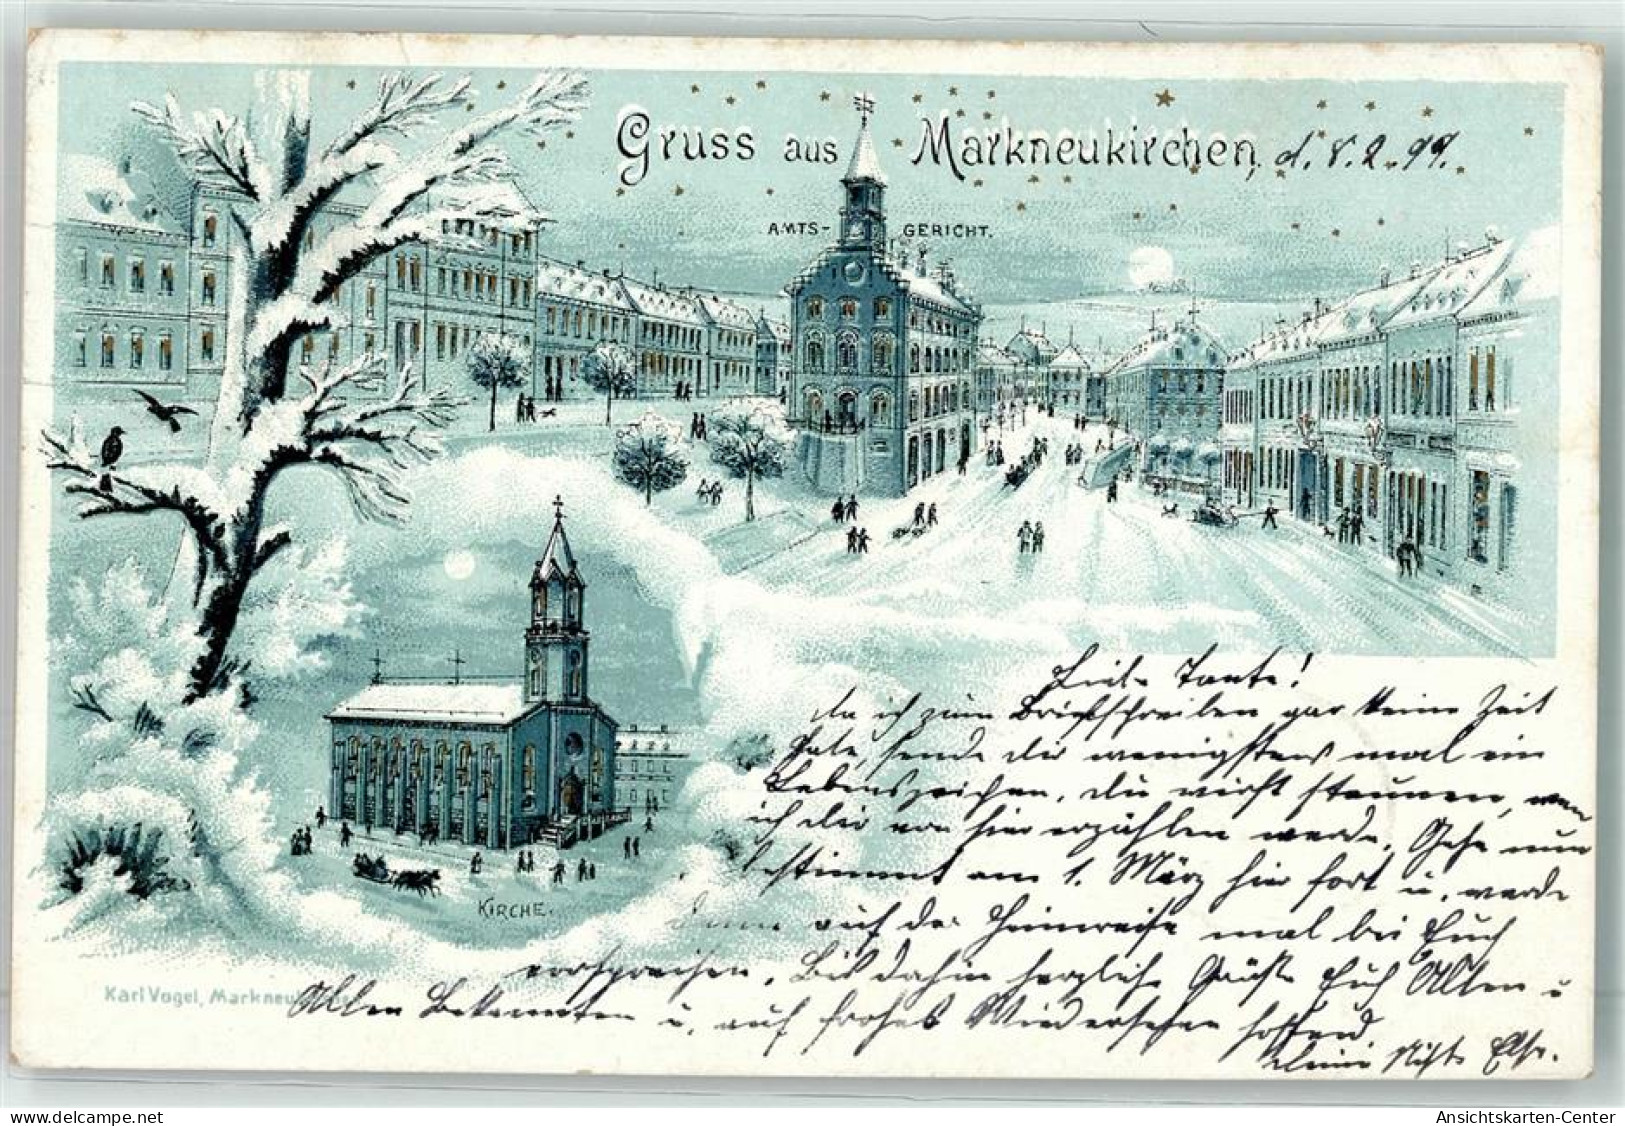 Gruss aus Markneukirchen, d. 8.2.99.
AMTS- GERICHT.
Liebe Tante!
da ich zum Briefschreiben gar keine Zeit
habe, sende dir wenigstens mal ein
Lebenszeichen, du wirst staunen, wenn
ich dir von hier erzählen werde. Gehe nun
bestimmt am 1. März hier fort u. werde
dann auf der Heimreise mal bei Euch
vorsprechen. Bis dahin herzliche Grüße Euch Allen u
Allen Bekannten u. auf frohes Wiedersehen hoffend
deine Nichte Else.
KIRCHE.
Karl Vogel, Markneukirchen
Ansichtskarten-Center
www.delcampe.net